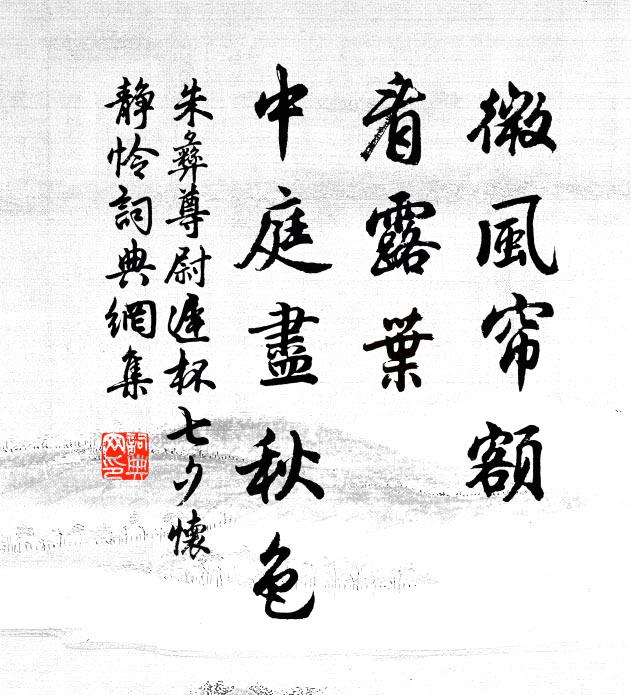 微風帘額
看露葉
中庭盡秋色
朱彝尊尉遲杯七夕懷
靜怜詞典網集
詞典
网印